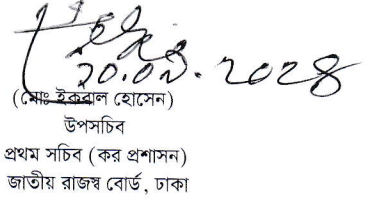 ২০.০৯.২০২৪
(মোঃ ইকবাল হোসেন)
উপসচিব
প্রথম সচিব (কর প্রশাসন)
জাতীয় রাজস্ব বোর্ড, ঢাকা